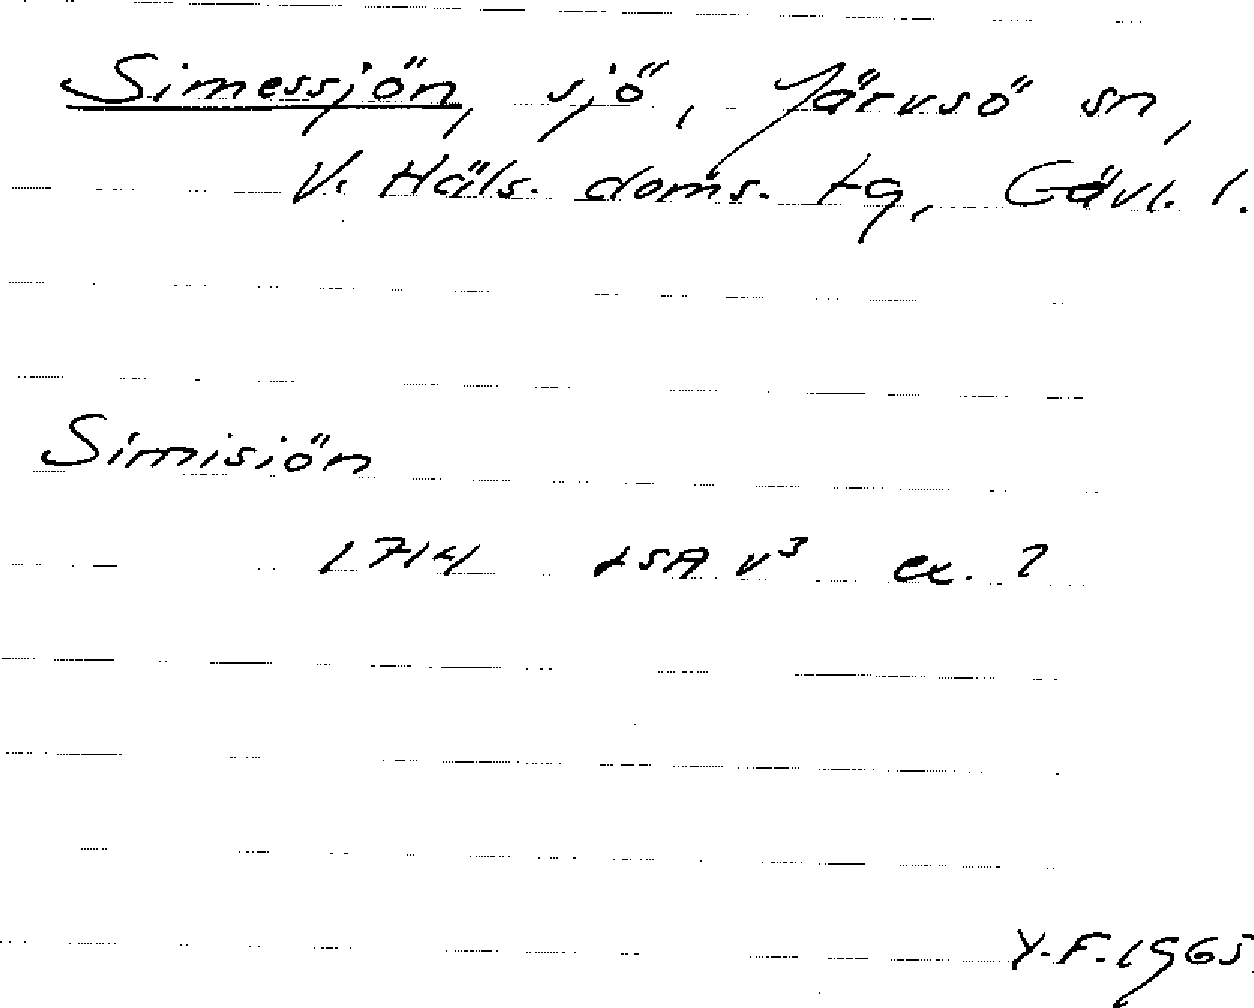 Simessjön, sjö, Järvsö sn,
V. Häls. doms. tg, Gävl. l.
Simisiön
1714 LSA v³ ex. 2
Y.F. 1965